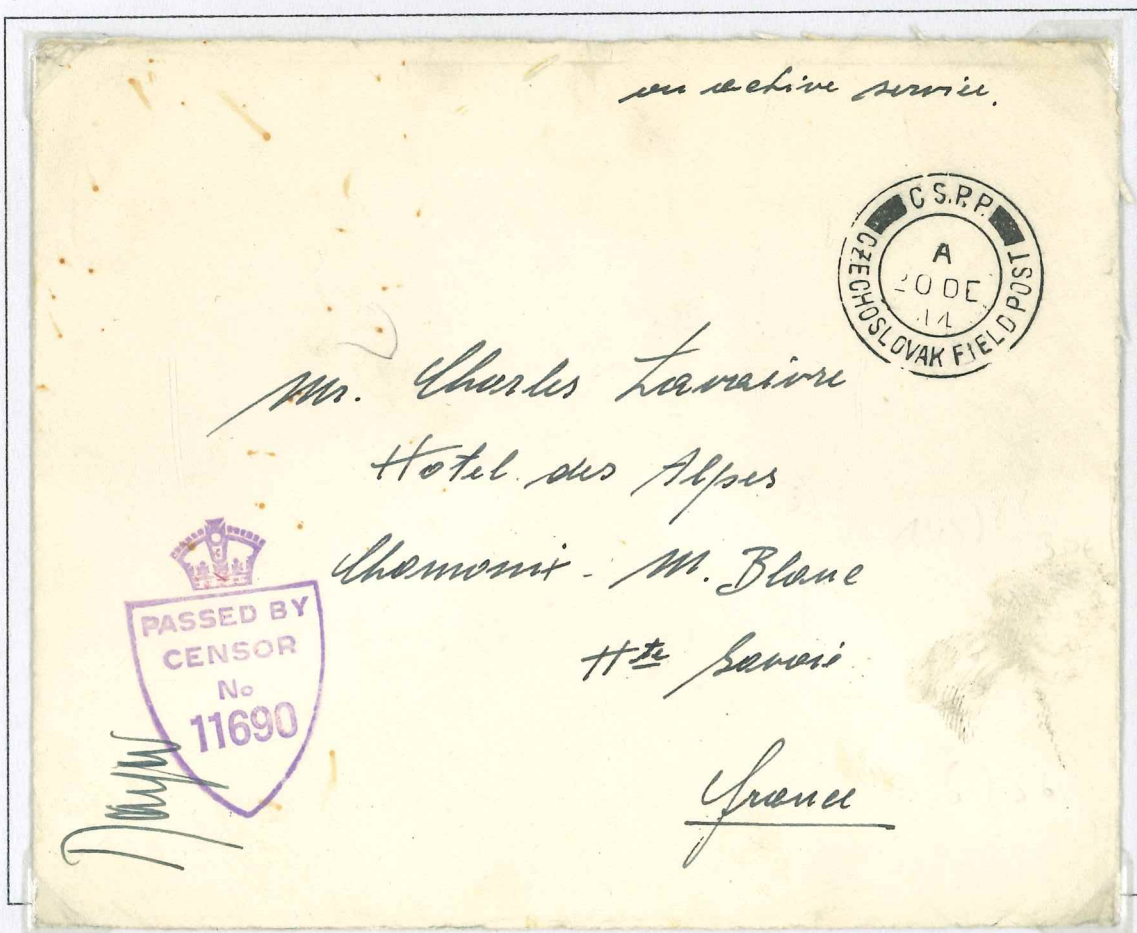 on active service.
C S.P.P.
A
20 DE
44
CZECHOSLOVAK FIELD POST
Mr. Charles Lavaivre
Hotel des Alpes
Chamonix - M. Blanc
Hte Savoie
France
PASSED BY
CENSOR
No
11690